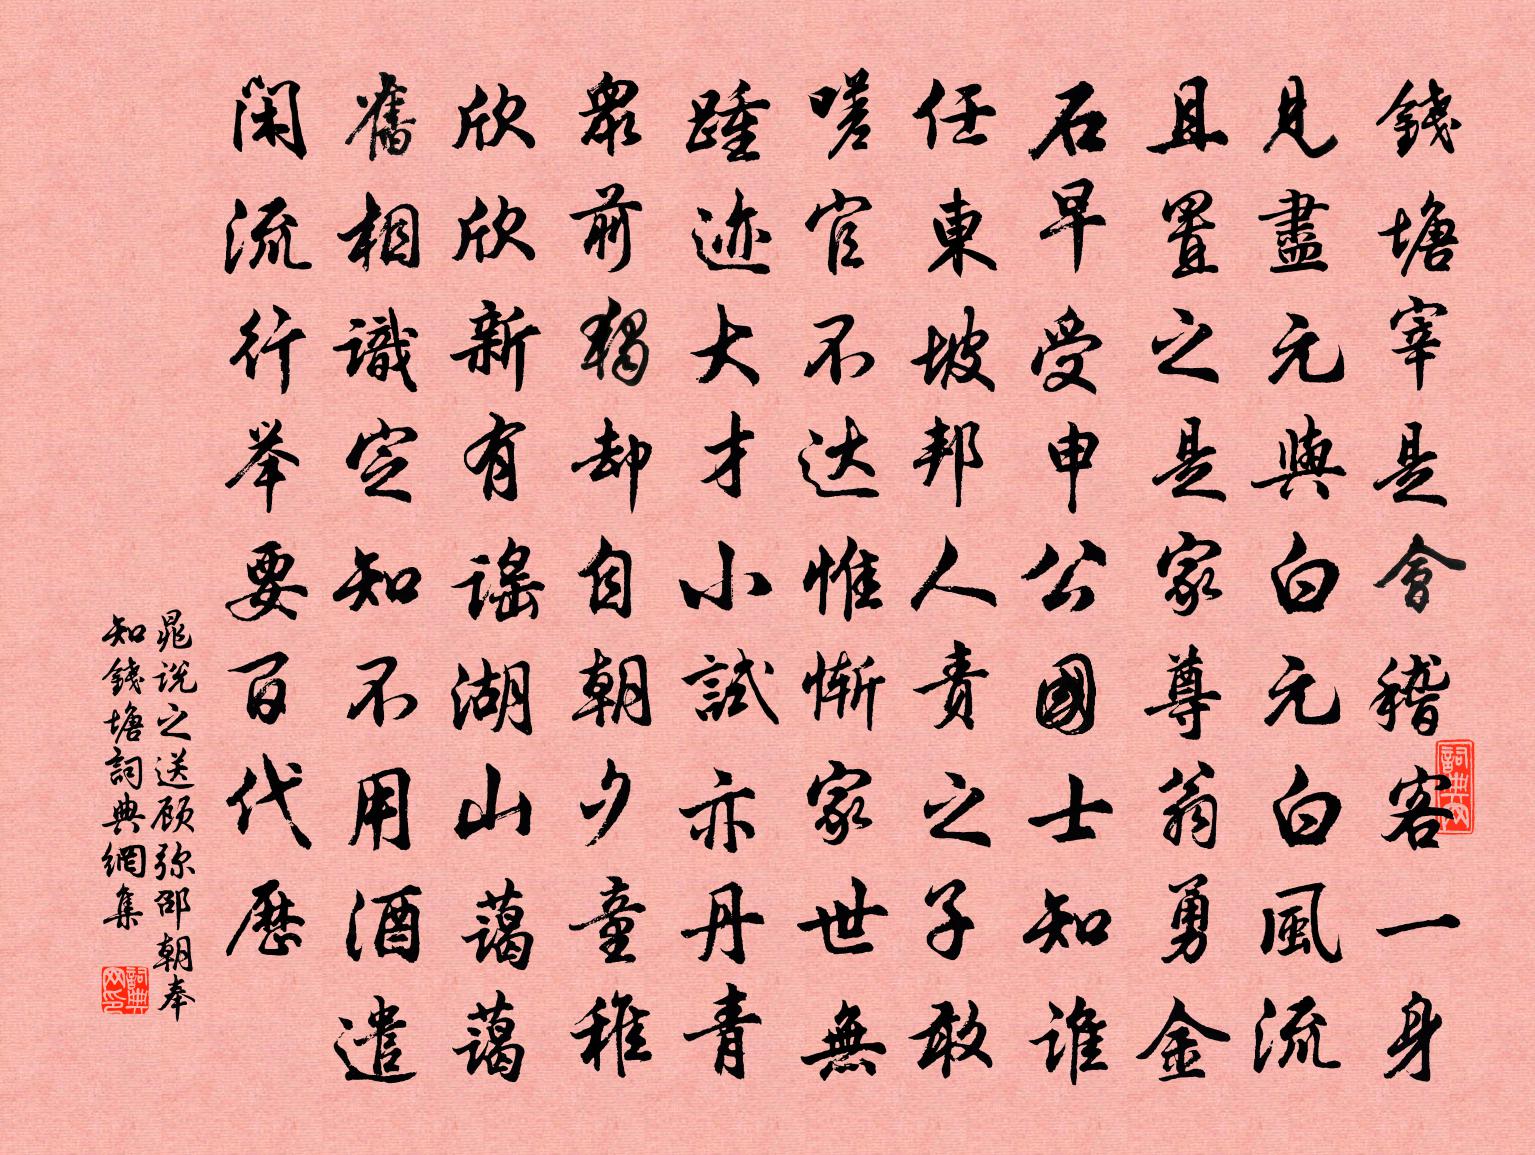 錢塘宰是會稽客一身
見盡元與白元白風流
且置之是家尊翁勇金
石早受申公國士知誰
任東坡邦人責之子敢
嗟官不达惟惭家世無
踵迹大才小試亦丹青
眾前獨却自朝夕童稚
欣欣新有謠湖山藹藹
舊相識定知不用酒遣
闲流行举要百代歷
晁说之送顾弥邵朝奉
知錢塘詞典網集
詞典网
詞典网印